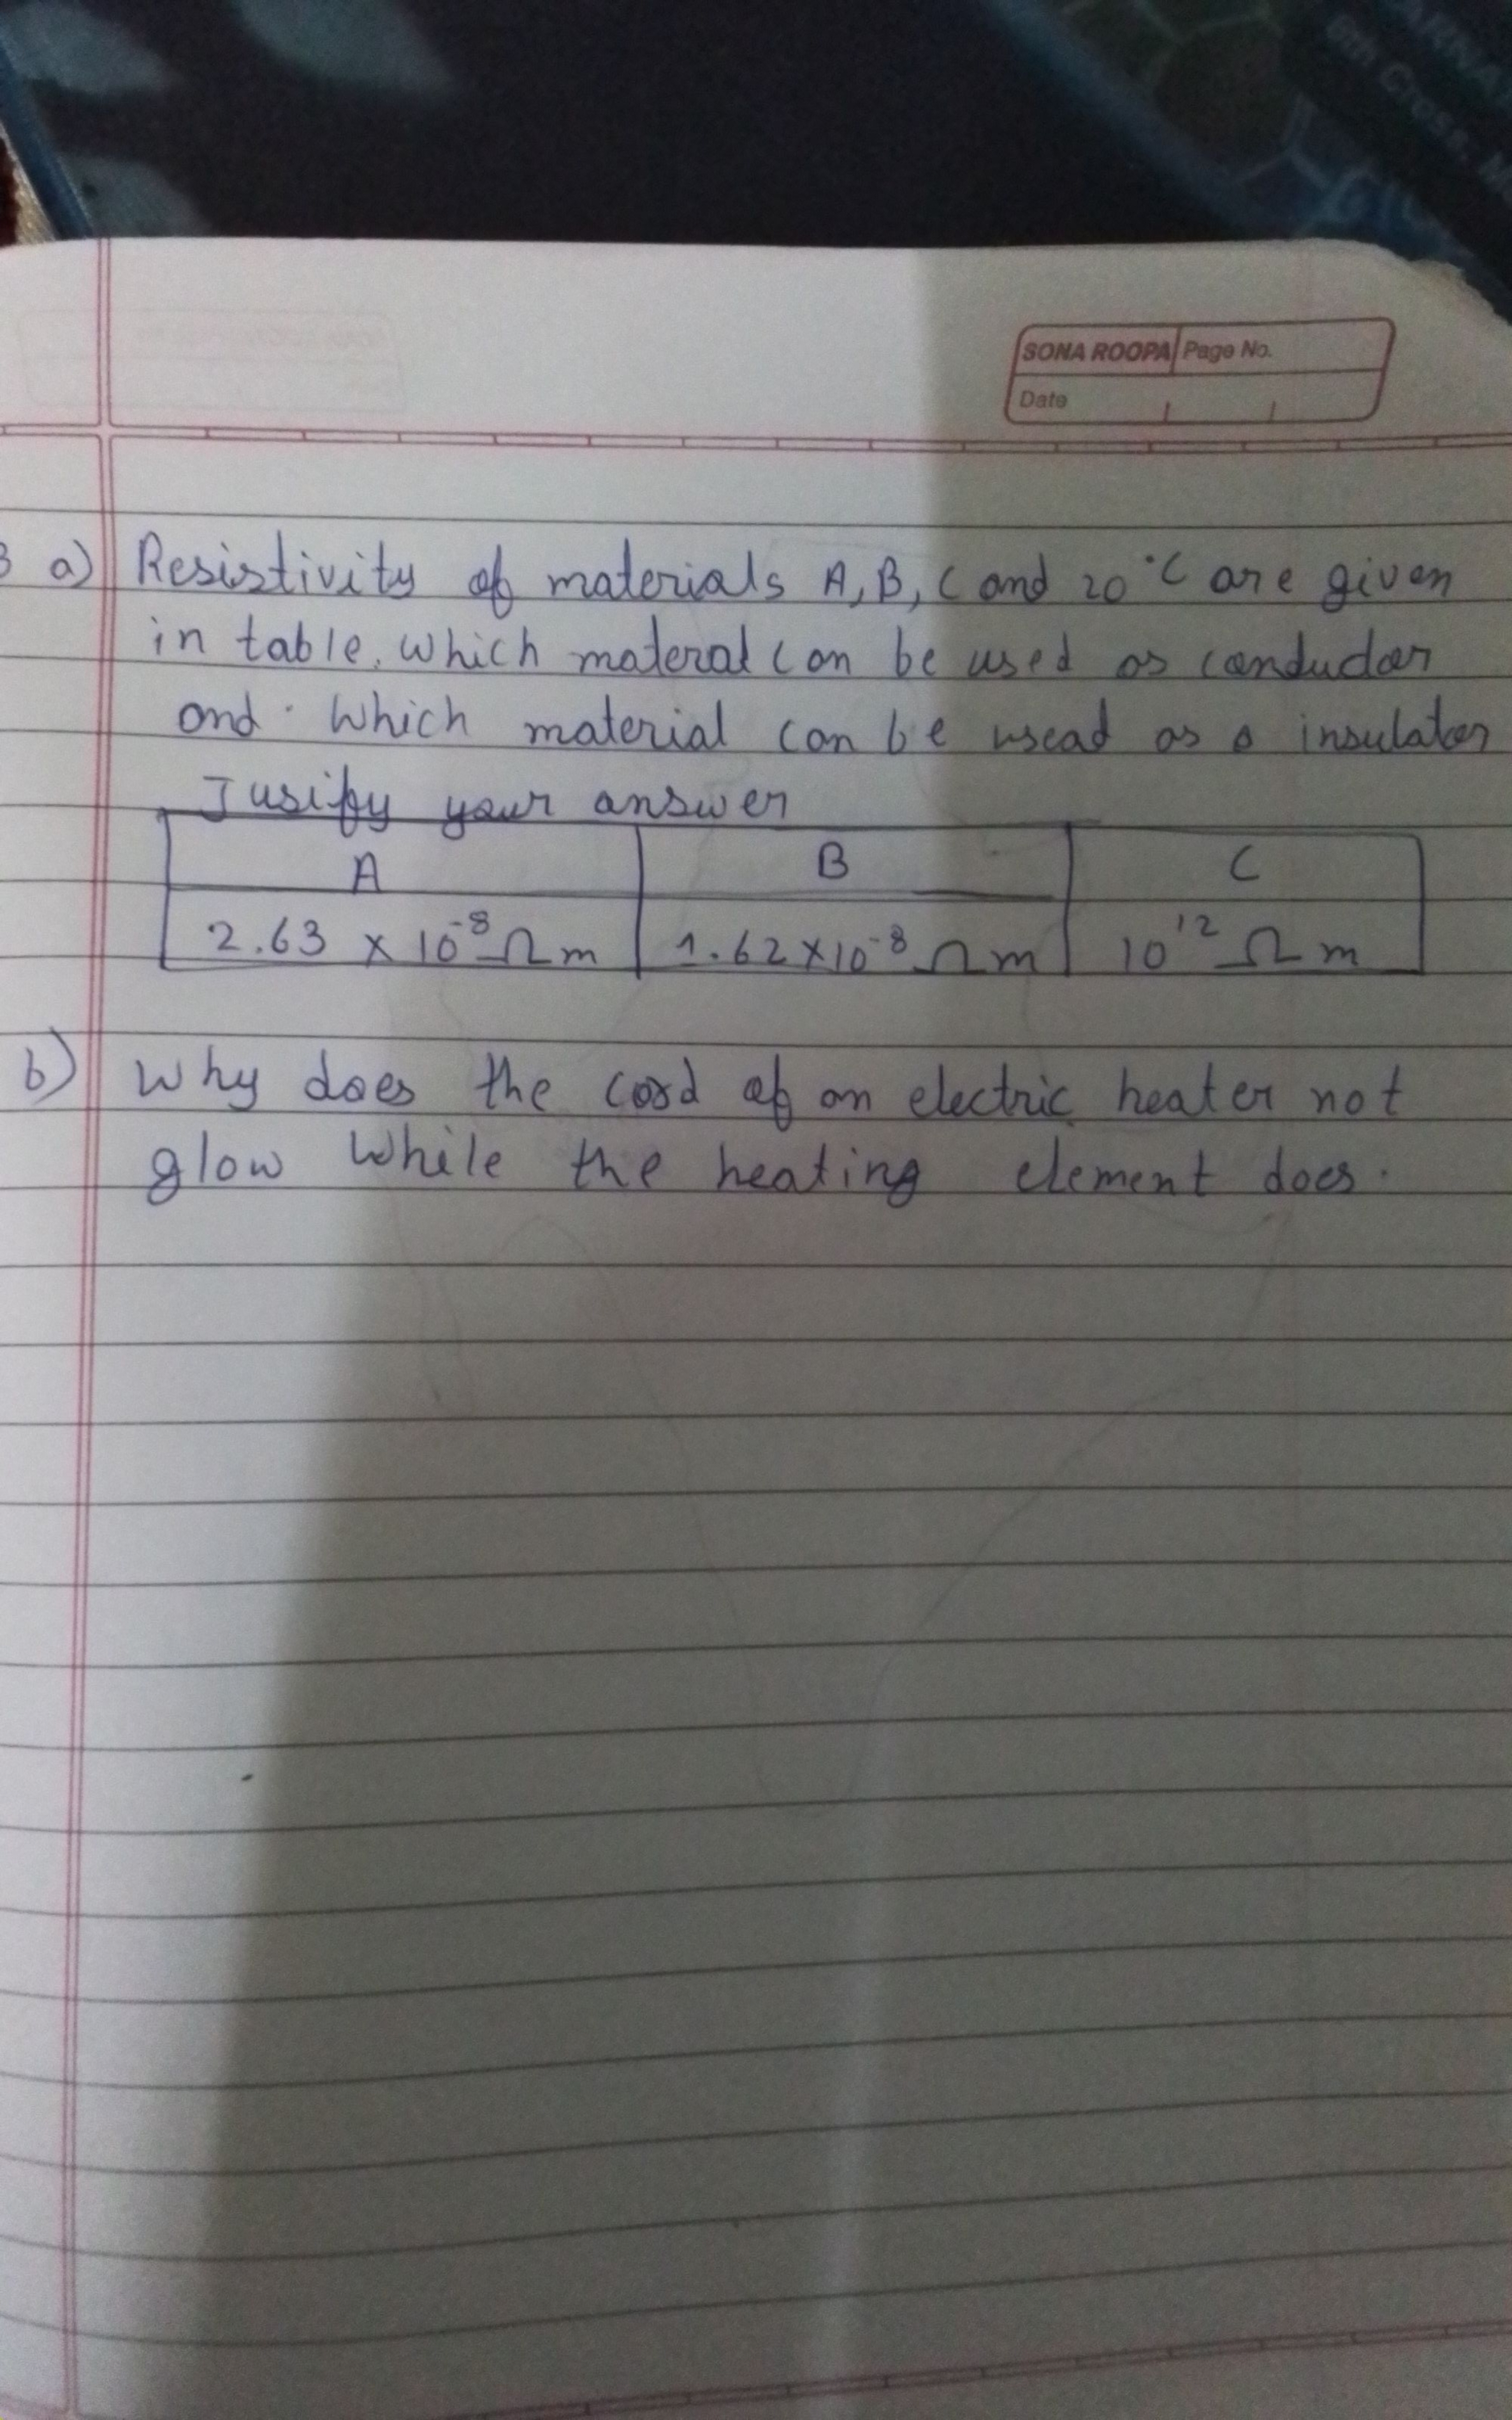 ARNA
8th Cross, M
SONA ROOPA Page No.
Date
3 a) Resistivity of materials A, B, C and 20°C are given
in table. Which materal can be used as conductor
and. Which material can be usead as a insulator
Jusify your answer
A B C
2.63 x 10⁻⁸ Ωm 1.62x10⁻⁸ Ωm 10¹² Ωm
b) Why does the cord of an electric heater not
glow While the heating element does.